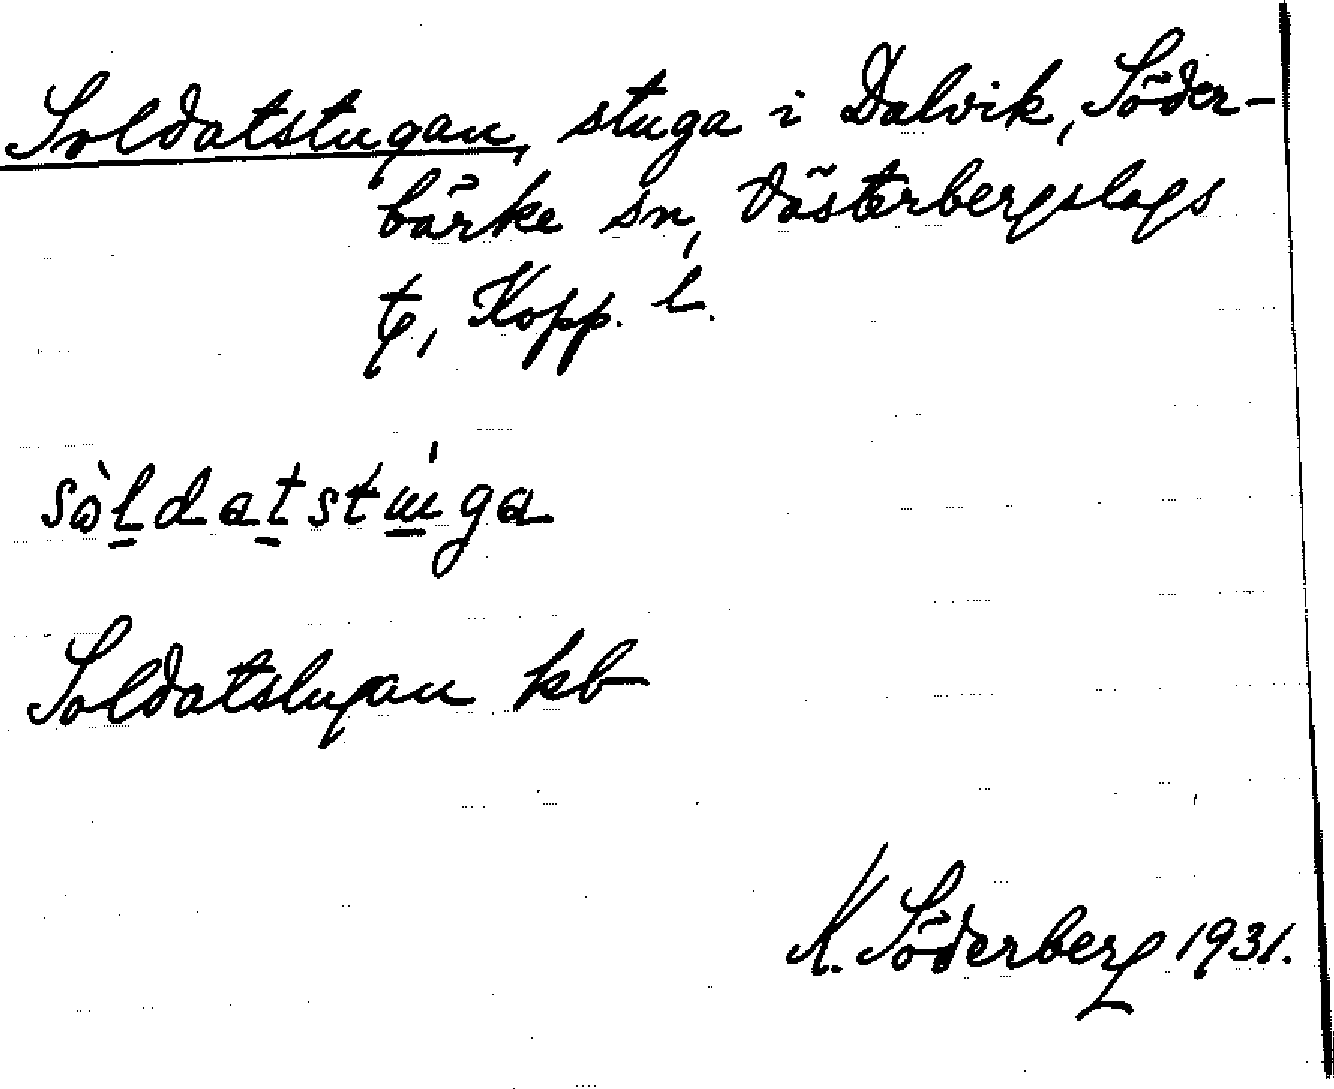 Soldatstugan, stuga i Dalvik, Söder-
bärke sn, Västerbergslags
tg, Kopp. l.
sòldatstuga
Soldatstugan kb
K. Söderberg 1931.